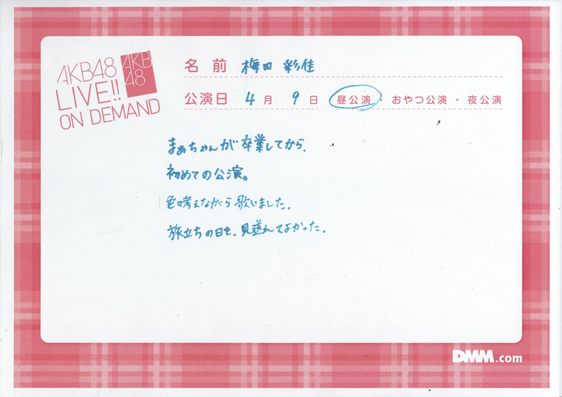 AKB48
LIVE!!
ON DEMAND
AKB
48
名 前 梅田 彩佳
公演日 4 月 9 日 昼公演・おやつ公演・夜公演
まぁちゃんが卒業してから、
初めての公演。
色々考えながら歌いました。
旅立ちの日を、見送れてよかった。
DMM.com